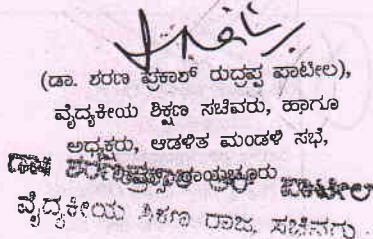 (ಡಾ. ಶರಣ ಪ್ರಕಾಶ್ ರುದ್ರಪ್ಪ ಪಾಟೀಲ),
ವೈದ್ಯಕೀಯ ಶಿಕ್ಷಣ ಸಚಿವರು, ಹಾಗೂ
ಅಧ್ಯಕ್ಷರು, ಆಡಳಿತ ಮಂಡಳಿ ಸಭೆ,
ರಾಯಚೂರು ಪಾಟೀಲ
ವೈದ್ಯಕೀಯ ಶಿಕ್ಷಣ ರಾಜ್ಯ ಸಚಿವರು